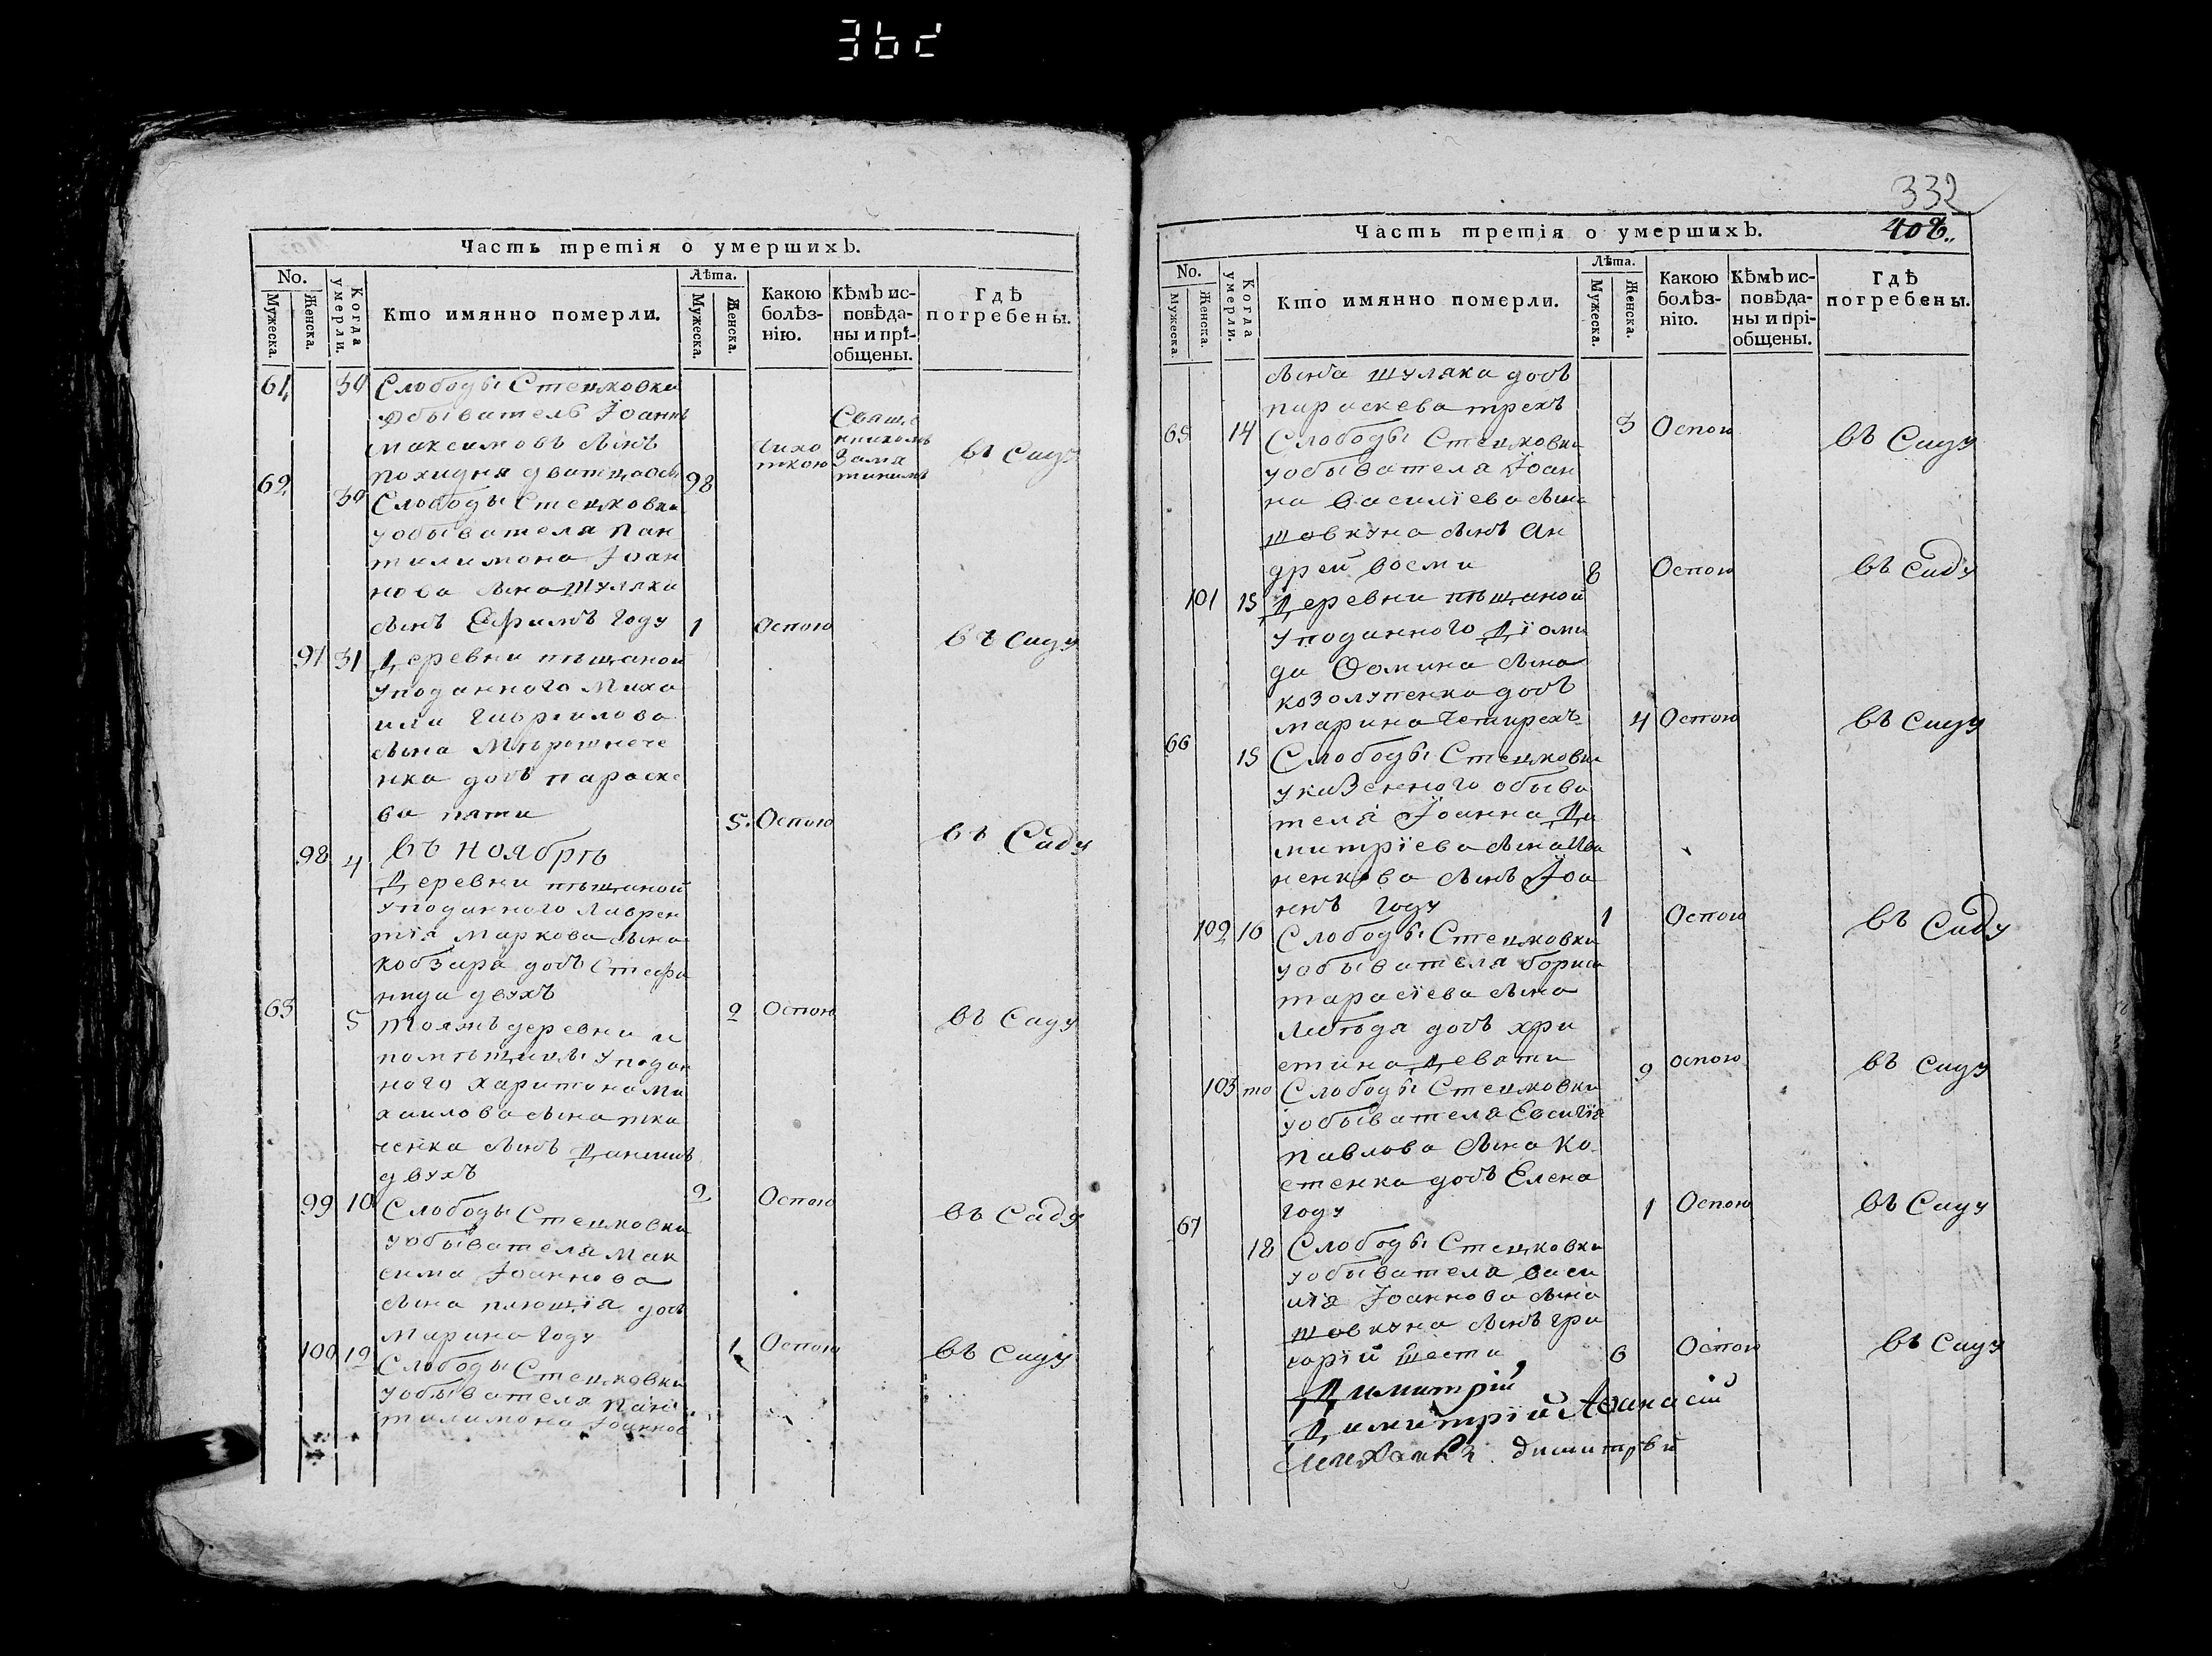 36d
Часть третія о умершихъ.
No.
Мужеска.
Женска.
Когда умерли.
Кто имянно померли.
Лѣта.
Мужеска.
Женска.
Какою болѣз-
нію.
Кѣмъ ис-
повѣда-
ны и прі-
общены.
Гдѣ
погребены.
61 30 Слободы Стецковки
обыватель Іоаннъ
максимовъ сынъ
похидня дватцаосм 28 Чихо
ткою Свяще
нникомъ въ Саду
62 30 Слободы Стецковки
у обывателя Пан
тилимона Іоан
нова сына Шуляки
сынъ Ефимъ году 1 Оспою въ саду
97 31 Деревни пѣщаной
у поданного Миха
ила Гавриилова
сына
нка дочь параске
ва пяти 5 Оспою въ Саду
въ ноябрѣ
98 4 Деревни пѣщаной
у поданного Лаврен
тія Маркова сына
кобзаря дочь Стефа
нида двухъ 2 Оспою въ Саду
63 5 Тояжъ деревни и
помѣщицы у подан
ного харитона Ми
хаилова сына тка
ченка сынъ Даниилъ
двухъ 2 Оспою въ Саду
99 10 Слободы Стецковки
у обывателя Мак
сима Іоаннова
сына плющія дочь
Марина году 1 Оспою въ Саду
100 12 Слободы Стецковки
у обывателя Пан
тилимона Іоаннов
332
408
Часть третія о умершихъ.
No.
Мужеска.
Женска.
Когда умерли.
Кто имянно померли.
Лѣта.
Мужеска.
Женска.
Какою
болѣз-
нію.
Кѣмъ ис-
повѣда-
ны и прі-
общены.
Гдѣ
погребены.
сына шуляка дочь
параскева трехъ 3 Оспою въ Саду
65 14 Слободы Стецковки
у обывателя Іоан
на василіева сына
шовкуна сынъ Ан
дрей восми 8 Оспою въ саду
101 15 Деревни пѣщаной
у поданного Діоми
да Ѳомина сына
козолупенка дочь
марина четирехъ 4 Оспою въ саду
66 15 Слободы Стецковки
у казенного обыва
теля Іоанна Ди
митріева сына Ива
ненкова сынъ Іоа
ннъ году 1 Оспою въ Саду
102 16 Слободы Стецковки
у обывателя бориса
тарасіева сына
Лебѣдя дочь хри
стина Девяти 9 оспою въ саду
103 то Слободы Стецковки
у обывателя
Павлова сына Ко
стенка дочь Елена
году 1 Оспою въ Саду
67 18 Слободы Стецковки
у обывателя васи
лія Іоаннова сына
шовкуна сынъ гри
горій шести 6 Оспою въ Саду
Димитрій
Димитрій Аѳанасій
димитрій